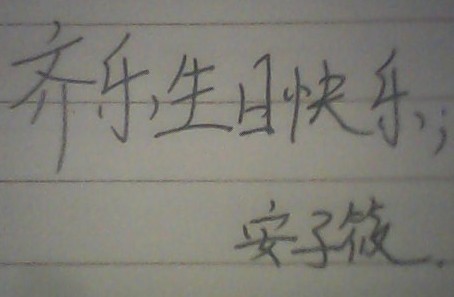 齐乐,生日快乐;
安子筱.